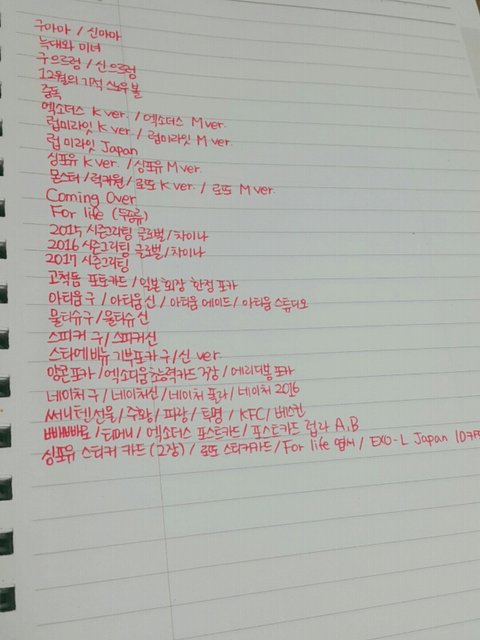 구마마 / 신마마
늑대와 미녀
구으르렁 / 신으르렁
12월의 기적 스노우볼
중독
엑소더스 K ver. / 엑소더스 M ver.
럽미라잇 K ver. / 럽미라잇 M ver.
럽미라잇 Japan
싱포유 K ver. / 싱포유 M ver.
몬스터 / 럭키원 / 로또 K ver. / 로또 M ver.
Coming Over
For life (두종류)
2015 시즌그리팅 글로벌 / 차이나
2016 시즌그리팅 글로벌 / 차이나
2017 시즌그리팅
고척돔 포토카드 / 일본회장 한정 포카
아티움 구 / 아티움 신 / 아티움 에이드 / 아티움 스튜디오
물티슈구 / 물티슈신
스피커 구 / 스피커신
스타에비뉴 기부포카 구 / 신 ver.
망몬포카 / 엑소디움초능력카드 거장 / 에리디봉포카
네이처구 / 네이처신 / 네이처 폴라 / 네이처 2016
써니텐선물 / 주황 / 파랑 / 투명 / KFC / 베스킨
빼빼로 / 티머니 / 엑소더스 포스트카드 / 포스트카드 럽라 A,B
싱포유 스티커 카드(2장) / 로또 스티커카드 / For life 엽서 / EXO-L Japan ID카드